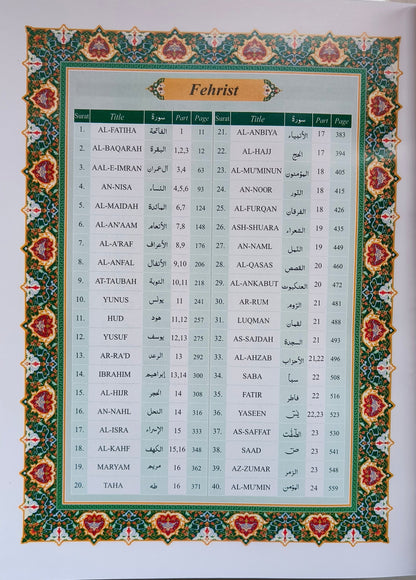 Fehrist
Surat Title سورة Part Page
1. AL-FATIHA الفاتحة 1 11
2. AL-BAQARAH البقرة 1,2,3 12
3. AAL-E-IMRAN آل عمران 3,4 63
4. AN-NISA النساء 4,5,6 93
5. AL-MAIDAH المائدة 6,7 124
6. AL-AN'AAM الأنعام 7,8 148
7. AL-A'RAF الأعراف 8,9 176
8. AL-ANFAL الأنفال 9,10 206
9. AT-TAUBAH التوبة 10,11 218
10. YUNUS يونس 11 241
11. HUD هود 11,12 257
12. YUSUF يوسف 12,13 275
13. AR-RA'D الرعد 13 292
14. IBRAHIM إبراهيم 13,14 300
15. AL-HIJR الحجر 14 308
16. AN-NAHL النحل 14 316
17. AL-ISRA الإسراء 15 333
18. AL-KAHF الكهف 15,16 348
19. MARYAM مريم 16 362
20. TAHA طه 16 371
Surat Title سورة Part Page
21. AL-ANBIYA الأنبياء 17 383
22. AL-HAJJ الحج 17 394
23. AL-MU'MINUN المؤمنون 18 405
24. AN-NOOR النور 18 415
25. AL-FURQAN الفرقان 18 426
26. ASH-SHUARA الشعراء 19 435
27. AN-NAML النمل 19 449
28. AL-QASAS القصص 20 460
29. AL-ANKABUT العنكبوت 20 472
30. AR-RUM الروم 21 481
31. LUQMAN لقمان 21 488
32. AS-SAJDAH السجدة 21 493
33. AL-AHZAB الأحزاب 21,22 496
34. SABA سبأ 22 508
35. FATIR فاطر 22 516
36. YASEEN يس 22,23 523
37. AS-SAFFAT الصّٰفّٰت 23 530
38. SAAD ص 23 541
39. AZ-ZUMAR الزمر 23 548
40. AL-MU'MIN المؤمن 24 559